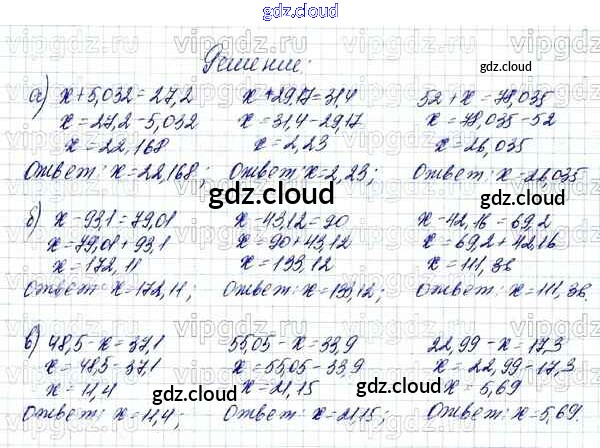 gdz.cloud
Решение:
gdz.cloud
а) x+5,032=27,2 x+29,17=31,4 52+x=78,035
x=27,2-5,032 x=31,4-29,17 x=78,035-52
x=22,168 x=2,23 x=26,035
Ответ: x=22,168; Ответ: x=2,23; Ответ: x=26,035
gdz.cloud
б) x-93,1=79,01 x-43,12=90 x-42,16=69,2
x=79,01+93,1 x=90+43,12 x=69,2+42,16
x=172,11 x=133,12 x=111,36
Ответ: x=172,11; Ответ: x=133,12; Ответ: x=111,36.
gdz.cloud
в) 48,5-x=37,1 55,05-x=33,9 22,99-x=17,3
x=48,5-37,1 x=55,05-33,9 x=22,99-17,3
x=11,4 x=21,15 x=5,69
gdz.cloud gdz.cloud
Ответ: x=11,4; Ответ: x=21,15; Ответ: x=5,69.